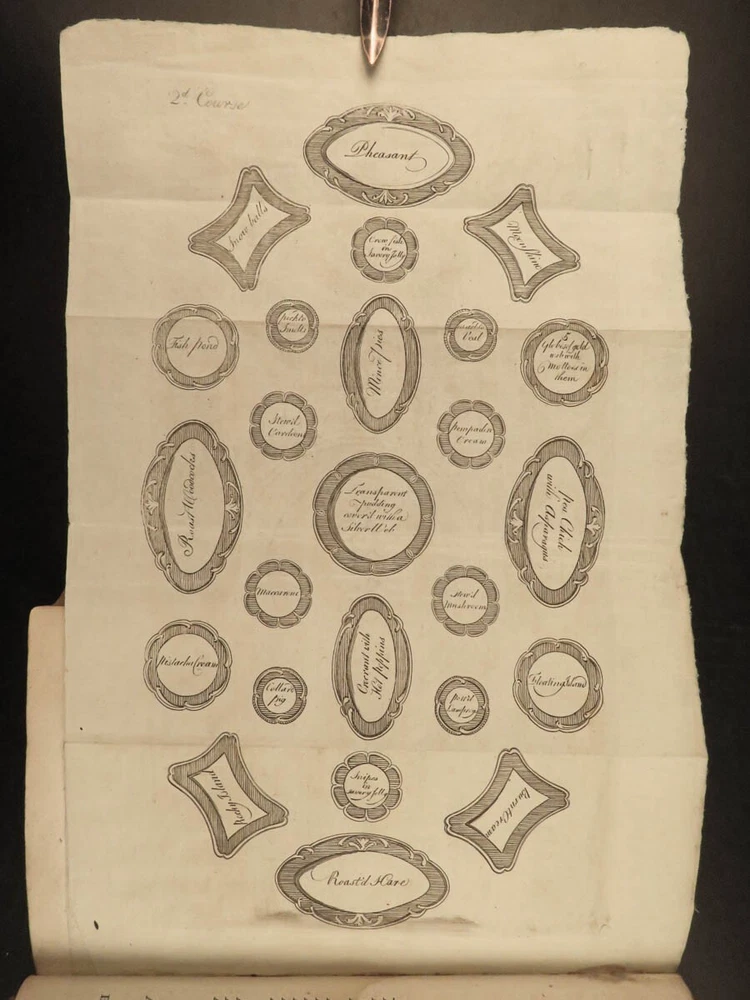 2d Course
Pheasant
Snow balls
Craw fish
in
savery jelly
Moonshine
Fish Pond
pickle
Smelts
Mince pies
Marble
Veal
5
Globes of gold
web with
Mottoes in
them
Stew'd
Cardoon
Pompadore
Cream
Roast Woodcocks
Transparent
pudding
cover'd with a
Silver Web
Pea Chick
with Asparagus
Maccaroni
Stew'd
Mushroom
Pistacho Cream
Collar'd
pig
Currant with
Hot pippins
pott'd
Lamprey
Floating Island
Rocky Island
Snipes
in
savery jelly
Burnt Cream
Roast'd Hare